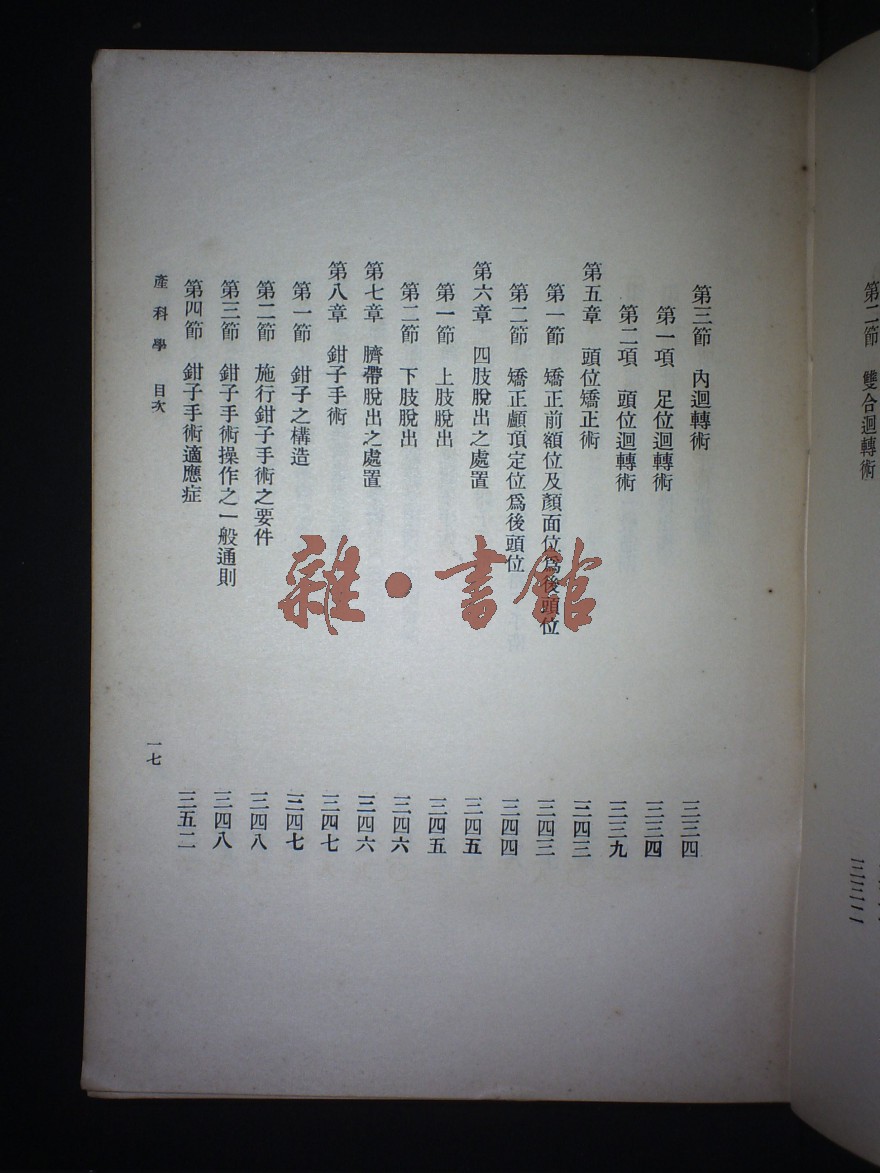 第二節　雙合迴轉術　三三二
第三節　內迴轉術　三三四
第一項　足位迴轉術　三三四
第二項　頭位迴轉術　三三九
第五章　頭位矯正術　三四三
第一節　矯正前額位及顏面位爲後頭位　三四三
第二節　矯正顱頂定位爲後頭位　三四四
第六章　四肢脫出之處置　三四五
第一節　上肢脫出　三四五
第二節　下肢脫出　三四六
第七章　臍帶脫出之處置　三四六
第八章　鉗子手術　三四七
第一節　鉗子之構造　三四七
第二節　施行鉗子手術之要件　三四八
第三節　鉗子手術操作之一般通則　三四八
第四節　鉗子手術適應症　三五二
產科學　目次　一七
雜・書館